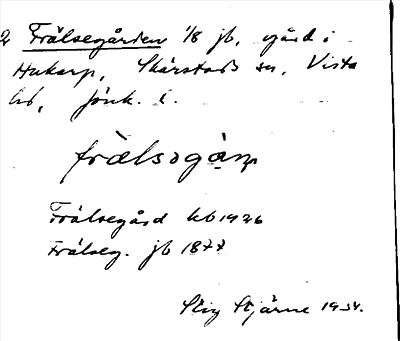 2 Frälsegården 1/8 jb, gård i
Hukarp, Skärstads sn, Vista
hd, Jönk. l.
frälsəgån
Frälsegård kb 1926
Frälseg. jb 1877
Stig Stjärne 1934.